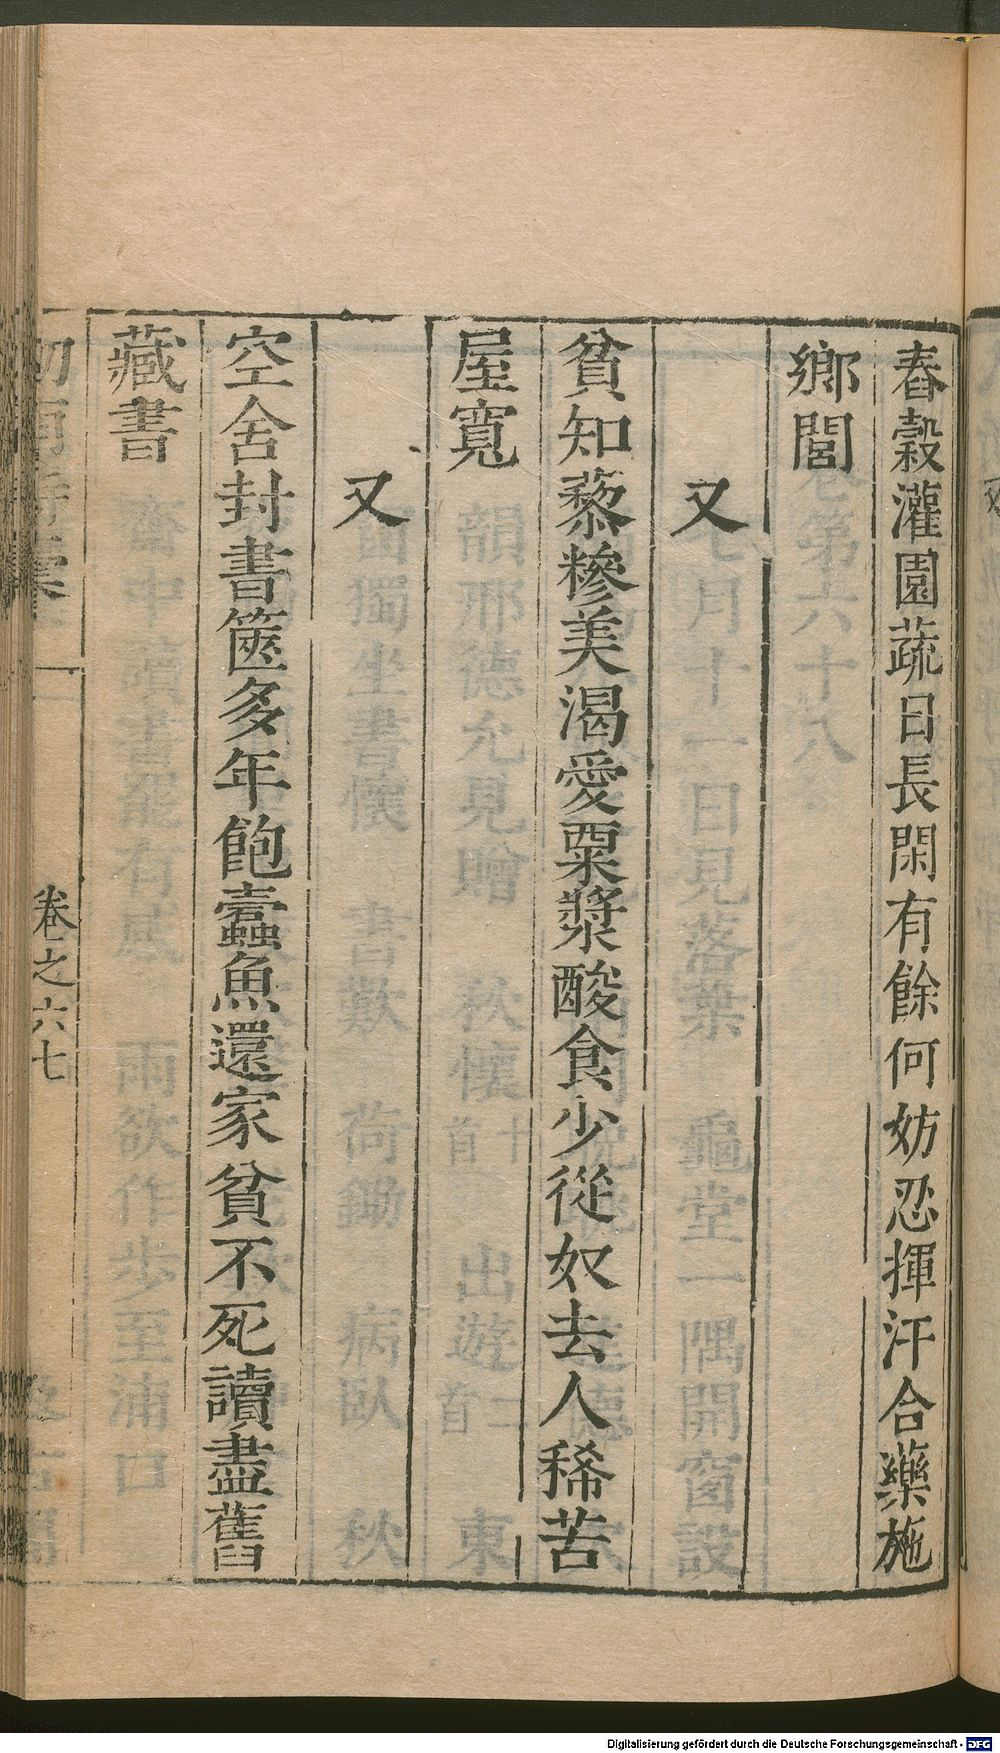 舂穀灌園蔬日長閑有餘何妨忍揮汗合藥施
鄉閭
又
貧知藜糝美渴愛粟漿酸食少從奴去人稀苦
屋寬
又
空舍封書篋多年飽蠹魚還家貧不死讀盡舊
藏書
卷之六七
Digitalisierung gefördert durch die Deutsche Forschungsgemeinschaft - DFG